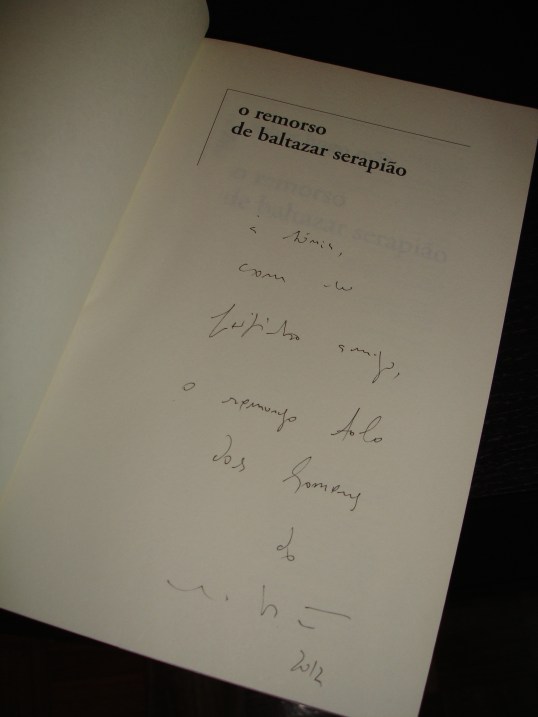 o remorso
de baltazar serapião
o remorso
de baltazar serapião
à tónia,
com um
beijinho amigo,
o remorso tolo
dos homens
do
2012